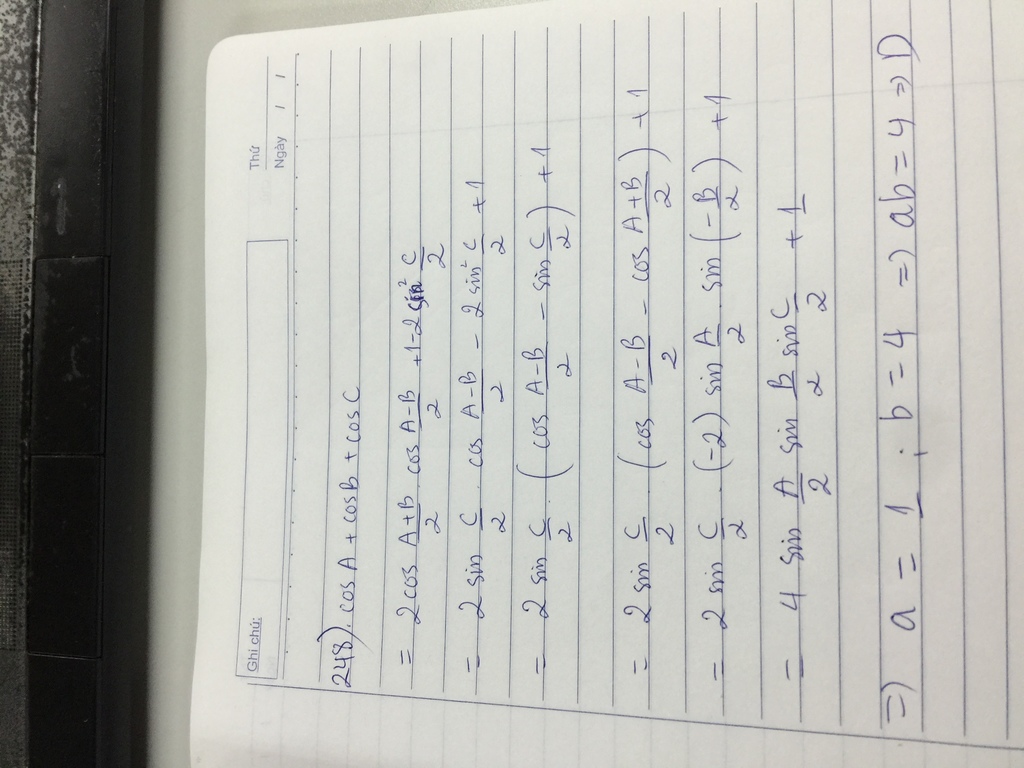 Ghi chú:
Thứ
Ngày / /
248). cos A + cosB + cosC
= 2cos (A+B)/2 cos (A-B)/2 +1-2 sin² C/2
= 2 sin C/2 . cos (A-B)/2 - 2 sin² C/2 + 1
= 2 sin C/2 . (cos (A-B)/2 - sin C/2) + 1
= 2 sin C/2 . (cos (A-B)/2 - cos (A+B)/2) + 1
= 2 sin C/2 . (-2) sin A/2 . sin (-B/2) + 1
= 4 sin A/2 sin B/2 sin C/2 + 1
=) a = 1 ; b = 4 =) ab = 4 => D